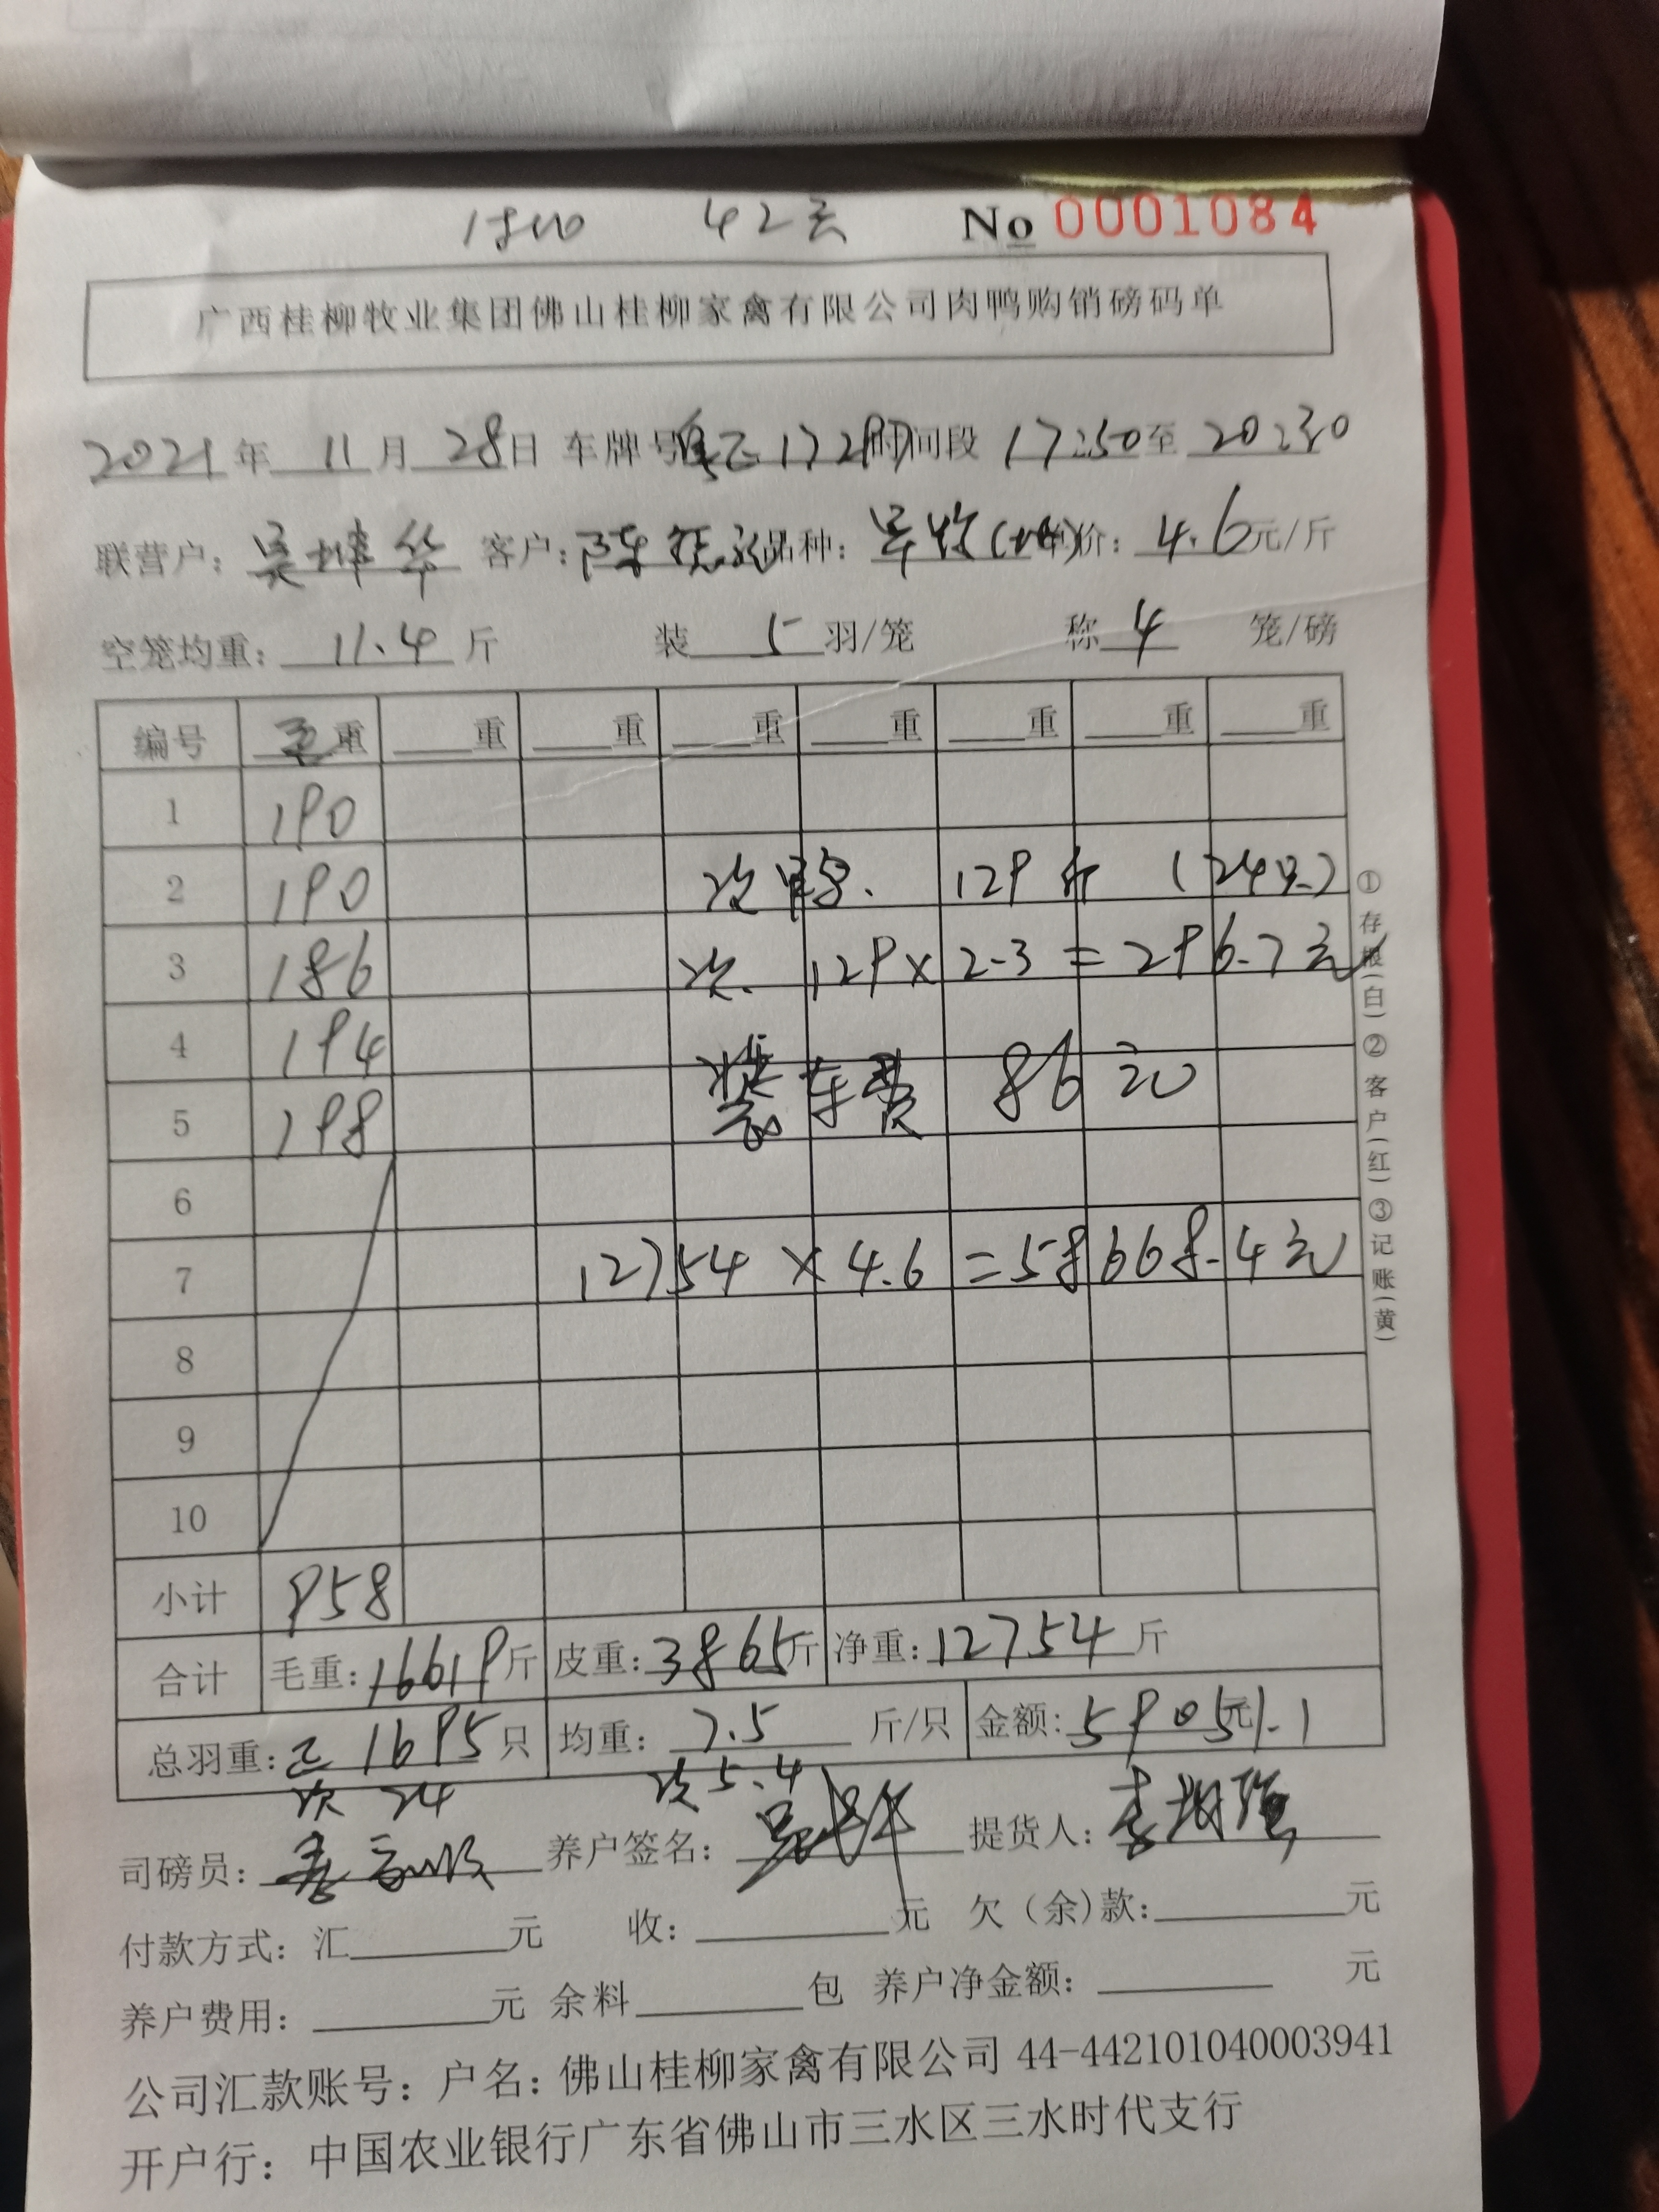 42天 No 0001084
广西桂柳牧业集团佛山桂柳家禽有限公司肉鸭购销磅码单
2021年 11月 28日 车牌号 时间段 17:50至 20:30
联营户: 吴坤华 客户: 陈 品种: 价: 4.6元/斤
空笼均重: 11.4斤 装 5 羽/笼 称 4 笼/磅
编号 毛重 重 重 重 重 重 重 重
1 190
2 190 次 129斤 (24只)
3 186 次. 129×2.3=296.7元
4 194
5 198 装车费 86元
6
7 12754×4.6=58668.4元
8
9
10
小计 958
合计 毛重: 16619斤 皮重: 3865斤 净重: 12754斤
总羽重: 正 1695只 均重: 7.5 斤/只 金额: 59051.1元
次 24 次 5.4
司磅员: 养户签名: 提货人: 李
付款方式: 汇 元 收: 元 欠(余)款: 元
养户费用: 元 余料 包 养户净金额: 元
公司汇款账号: 户名: 佛山桂柳家禽有限公司 44-442101040003941
开户行: 中国农业银行广东省佛山市三水区三水时代支行
①存根(白)②客户(红)③记账(黄)